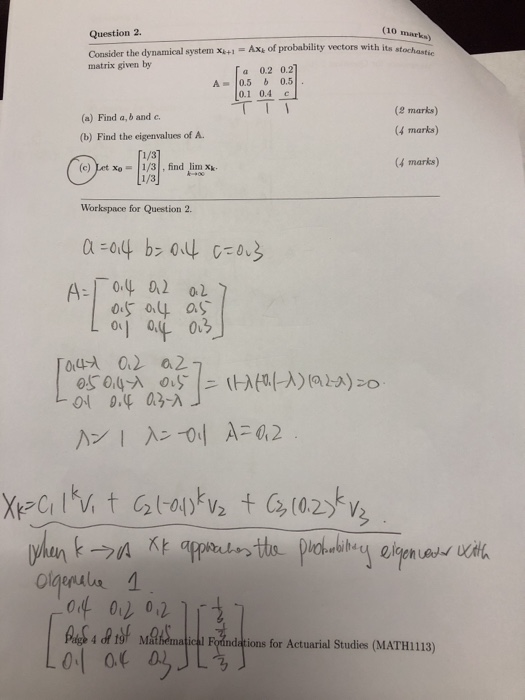 Question 2.
(10 marks)
Consider the dynamical system xₖ₊₁ = Axₖ of probability vectors with its stochastic
matrix given by
A = [a 0.2 0.2
0.5 b 0.5
0.1 0.4 c]
(a) Find a, b and c.
(2 marks)
(b) Find the eigenvalues of A.
(4 marks)
(c) Let x₀ = [1/3
1/3
1/3], find lim k→∞ xₖ.
(4 marks)
Workspace for Question 2.
a=0.4 b=0.4 c=0.3
A=[0.4 0.2 0.2
0.5 0.4 0.5
0.1 0.4 0.3]
[0.4-λ 0.2 0.2
0.5 0.4-λ 0.5
0.1 0.4 0.3-λ] = (1-λ)(-0.1-λ)(0.2-λ)=0.
λ=1 λ=-0.1 λ=0.2.
Xk=C₁1ᵏV₁ + C₂(-0.1)ᵏV₂ + C₃(0.2)ᵏV₃.
When k→ Xk approaches the probability eigenvector with
eigenvalue 1.
[0.4 0.2 0.2
Page 4 of 19 Mathematical Foundations for Actuarial Studies (MATH1113)
0.1 0.4 0.3]